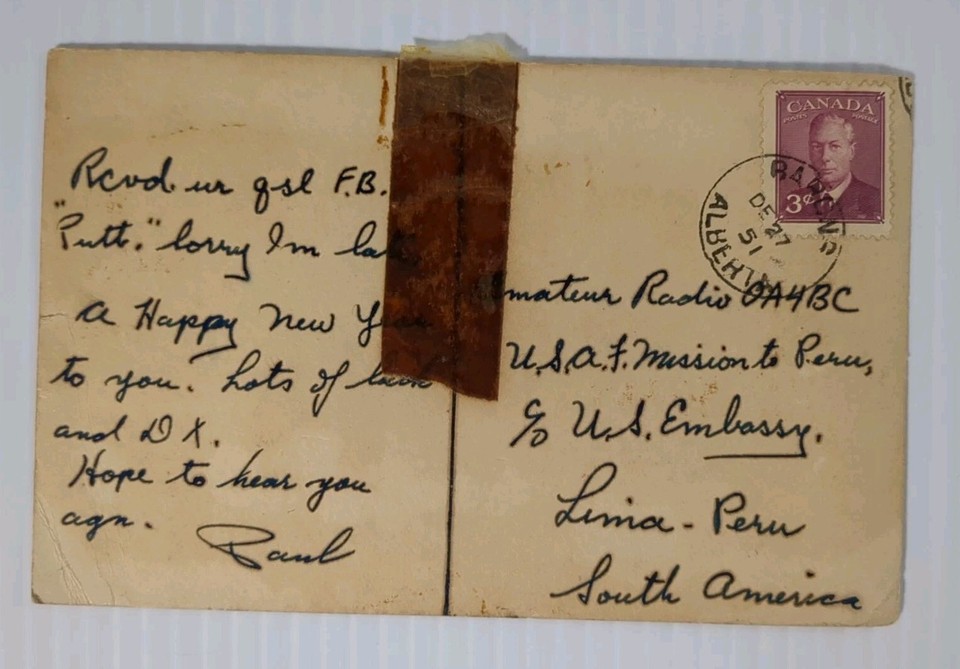 Rcvd. ur qsl F.B.
"Putt." Sorry Im late
A Happy New Year
to you. Lots of luck
and DX.
Hope to hear you
agn.
Paul
CANADA
POSTES POSTAGE
3¢
RAYMOND
DE 27
51
ALBERTA
Amateur Radio OA4BC
U.S.A.F. Mission to Peru,
c/o U.S. Embassy.
Lima - Peru
South America